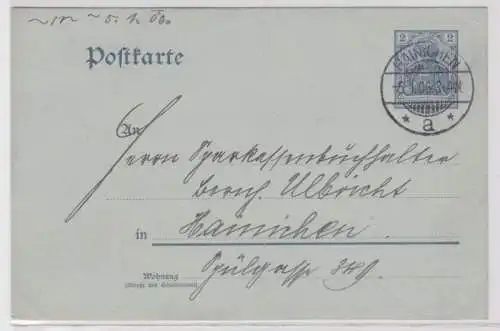 Postkarte
2
HAINICHEN
a
An
Herrn Sparkassenbuchhalter
Bernh. Ulbricht
in
Hainichen.
Wohnung
(Straße und Hausnummer)
Spülgasse 349.